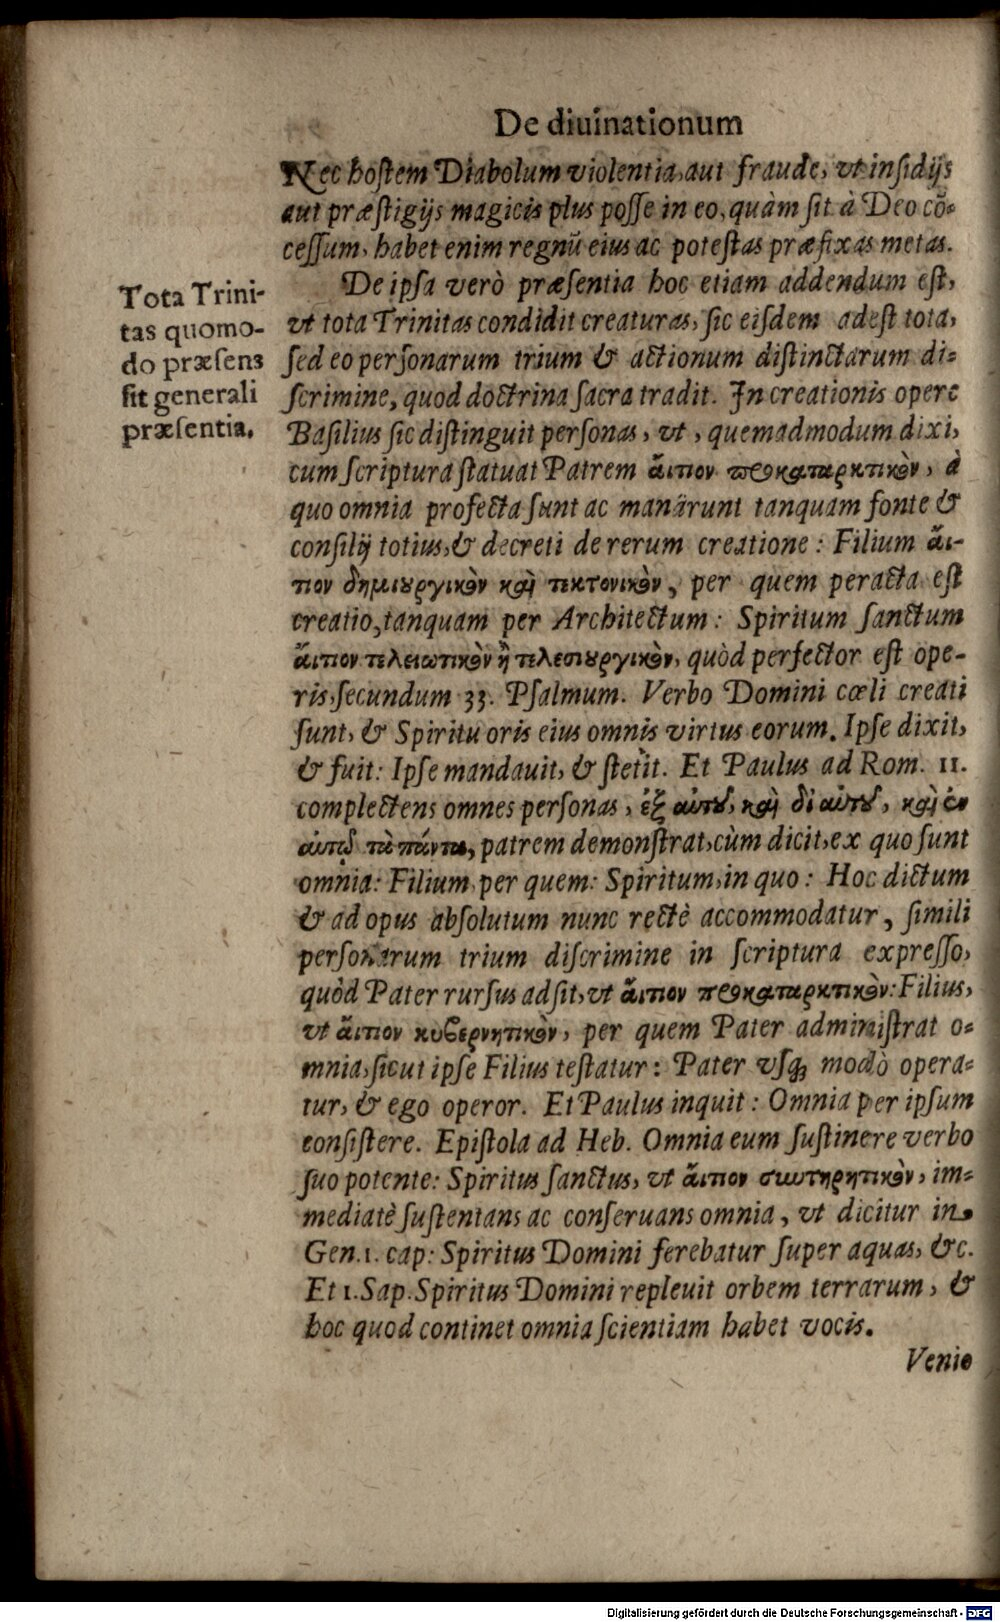 De diuinationum
Nec hostem Diabolum violentia, aut fraude, vt insidijs
aut præstigijs magicis plus posse in eo, quàm sit à Deo cõ-
cessum, habet enim regnũ eius ac potestas præfixas metas.
De ipsa verò præsentia hoc etiam addendum est,
vt tota Trinitas condidit creaturas, sic eisdem adest tota,
sed eo personarum trium & actionum distinctarum di-
scrimine, quod doctrina sacra tradit. In creationis opere
Basilius sic distinguit personas, vt, quemadmodum dixi,
cum scriptura statuat Patrem ἄιτιον προκαταρκτικὸν, à
quo omnia profecta sunt ac manârunt tanquam fonte &
consilij totius, & decreti de rerum creatione: Filium ἄι-
τιον δημιουργικὸν καὶ τεκτονικὸν, per quem peracta est
creatio, tanquam per Architectum: Spiritum sanctum
ἄιτιον τελειωτικὸν ἢ τελεσιουργικὸν, quòd perfector est ope-
ris, secundum 33. Psalmum. Verbo Domini cœli creati
sunt, & Spiritu oris eius omnis virtus eorum. Ipse dixit,
& fuit: Ipse mandauit, & stetit. Et Paulus ad Rom. 11.
complectens omnes personas, ἐξ αὐτοῦ, καὶ δι αὐτοῦ, καὶ ἐν
αὐτῷ τὰ πάντα, patrem demonstrat, cùm dicit, ex quo sunt
omnia: Filium, per quem: Spiritum, in quo: Hoc dictum
& ad opus absolutum nunc rectè accommodatur, simili
personarum trium discrimine in scriptura expresso,
quòd Pater rursus adsit, vt ἄιτιον προκαταρκτικὸν: Filius,
vt ἄιτιον κυβερνητικὸν, per quem Pater administrat o-
mnia, sicut ipse Filius testatur: Pater vsq; modò opera-
tur, & ego operor. Et Paulus inquit: Omnia per ipsum
consistere. Epistola ad Heb. Omnia eum sustinere verbo
suo potente: Spiritus sanctus, vt ἄιτιον συντηρητικὸν, im-
mediatè sustentans ac conseruans omnia, vt dicitur in
Gen. 1. cap: Spiritus Domini ferebatur super aquas, &c.
Et 1. Sap. Spiritus Domini repleuit orbem terrarum, &
hoc quod continet omnia scientiam habet vocis.
Venio
Tota Trini-
tas quomo-
do præsens
sit generali
præsentia.
Digitalisierung gefördert durch die Deutsche Forschungsgemeinschaft - DFG